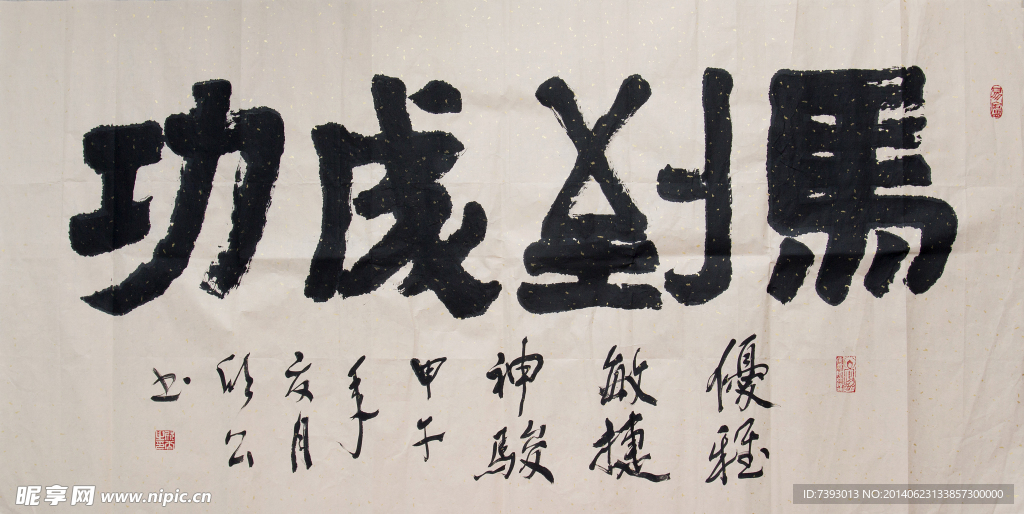 馬到成功
優雅
敏捷
神駿
甲午
年
夏月
欣公
书
昵享网 www.nipic.cn
ID:7393013 NO:20140623133857300000